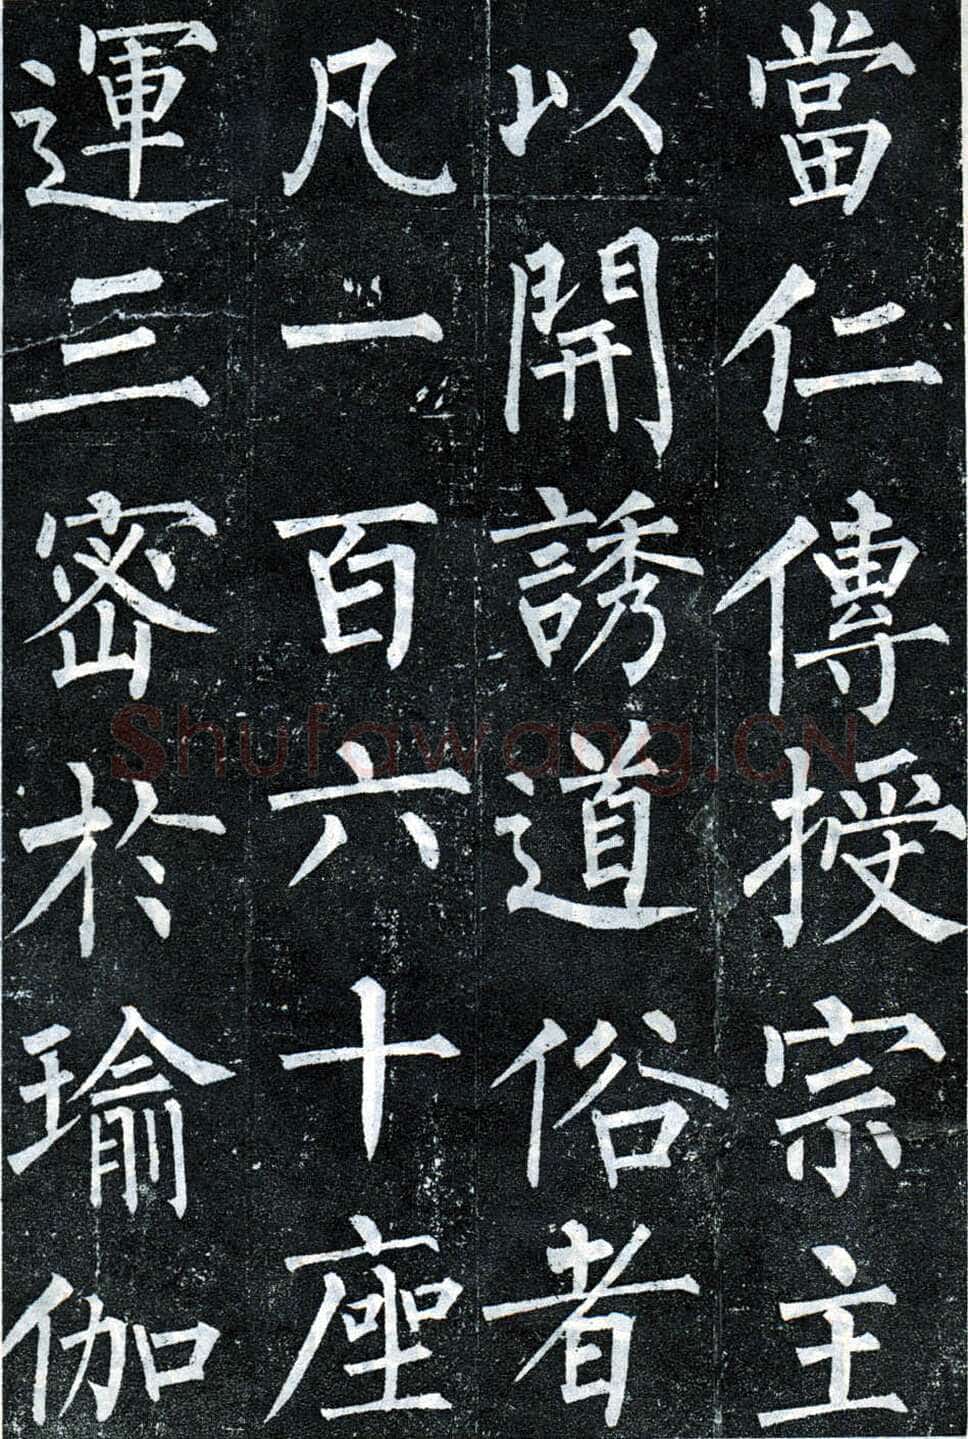 當仁傳授宗主
以開誘道俗者
凡一百六十座
運三密於瑜伽
Shufawang.CN